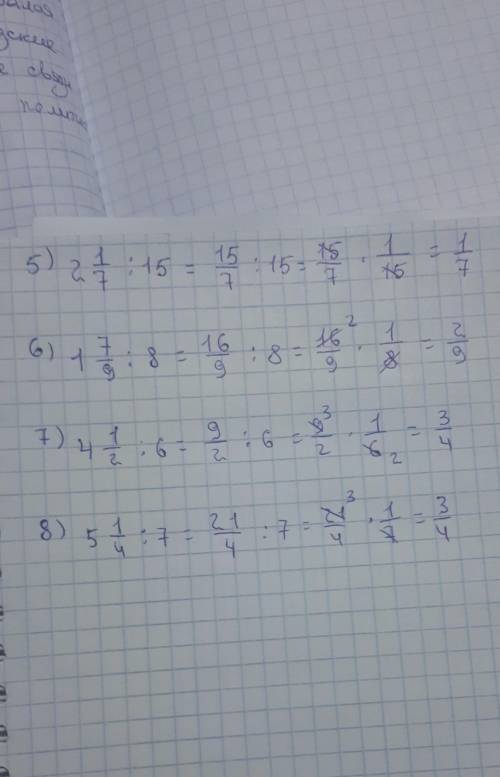 5) 2 1/7 : 15 = 15/7 : 15 = 15/7 · 1/15 = 1/7
6) 1 7/9 : 8 = 16/9 : 8 = 16²/9 · 1/8 = 2/9
7) 4 1/2 : 6 = 9/2 : 6 = 9³/2 · 1/6 ₂ = 3/4
8) 5 1/4 : 7 = 21/4 : 7 = 21³/4 · 1/7 = 3/4